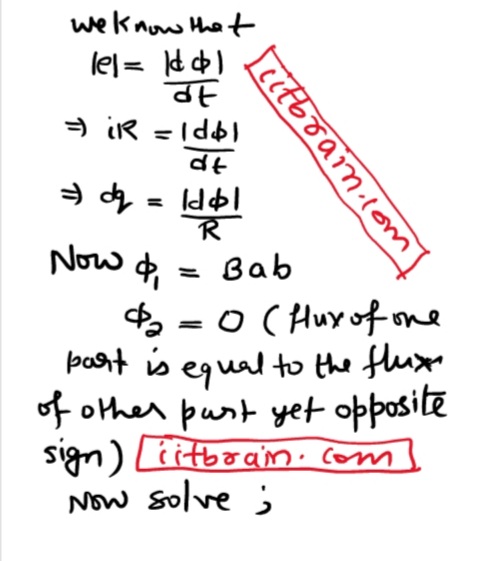 we know that
|e| = |dϕ|/dt
⇒ iR = |dϕ|/dt
⇒ dq = |dϕ|/R
iitbrain.com
Now ϕ₁ = Bab
ϕ₂ = 0 (flux of one
part is equal to the flux
of other part yet opposite
sign) iitbrain.com
Now solve ;